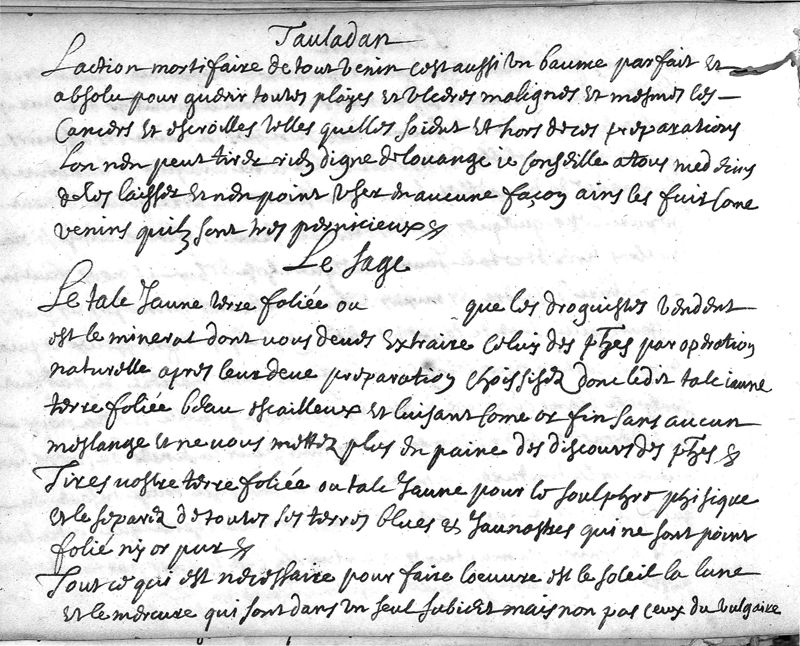 Tauladan
Laction mortifaire de tout venin cest aussi un baume parfait et
absolu pour guerir toutes playes et ulceres malignes et mesmes les
Cancers et escroilles telles quelles soient et hors de ces preparations
Lon nen peut tirer rien digne de louange ie conseille a tous medecins
de les laisser et nen point user en aucune façon ains les fuir come
venins quilz sont tres pernicieux
Le sage
Le talc Jaune terre foliée ou que les droguistes vendent
est le mineral dont vous deves extraire celuy des phes par operation
naturelle apres leur deue preparation choisissez donc ledit talc iaune
terre foliée beau escailleux et luisant come or fin sans aucun
meslange et ne vous mettez plus en paine des discours des phes
Tires nostre terre foliée ou talc Jaune pour le soulphre phisique
et le separez de toutes ses terres blues et Jaunastres qui ne sont point
folié ny or pur
Tout ce qui est necessaire pour faire loeuure est le soleil la lune
et le mercure qui sont dans un seul subiect mais non pas ceux du vulgaire